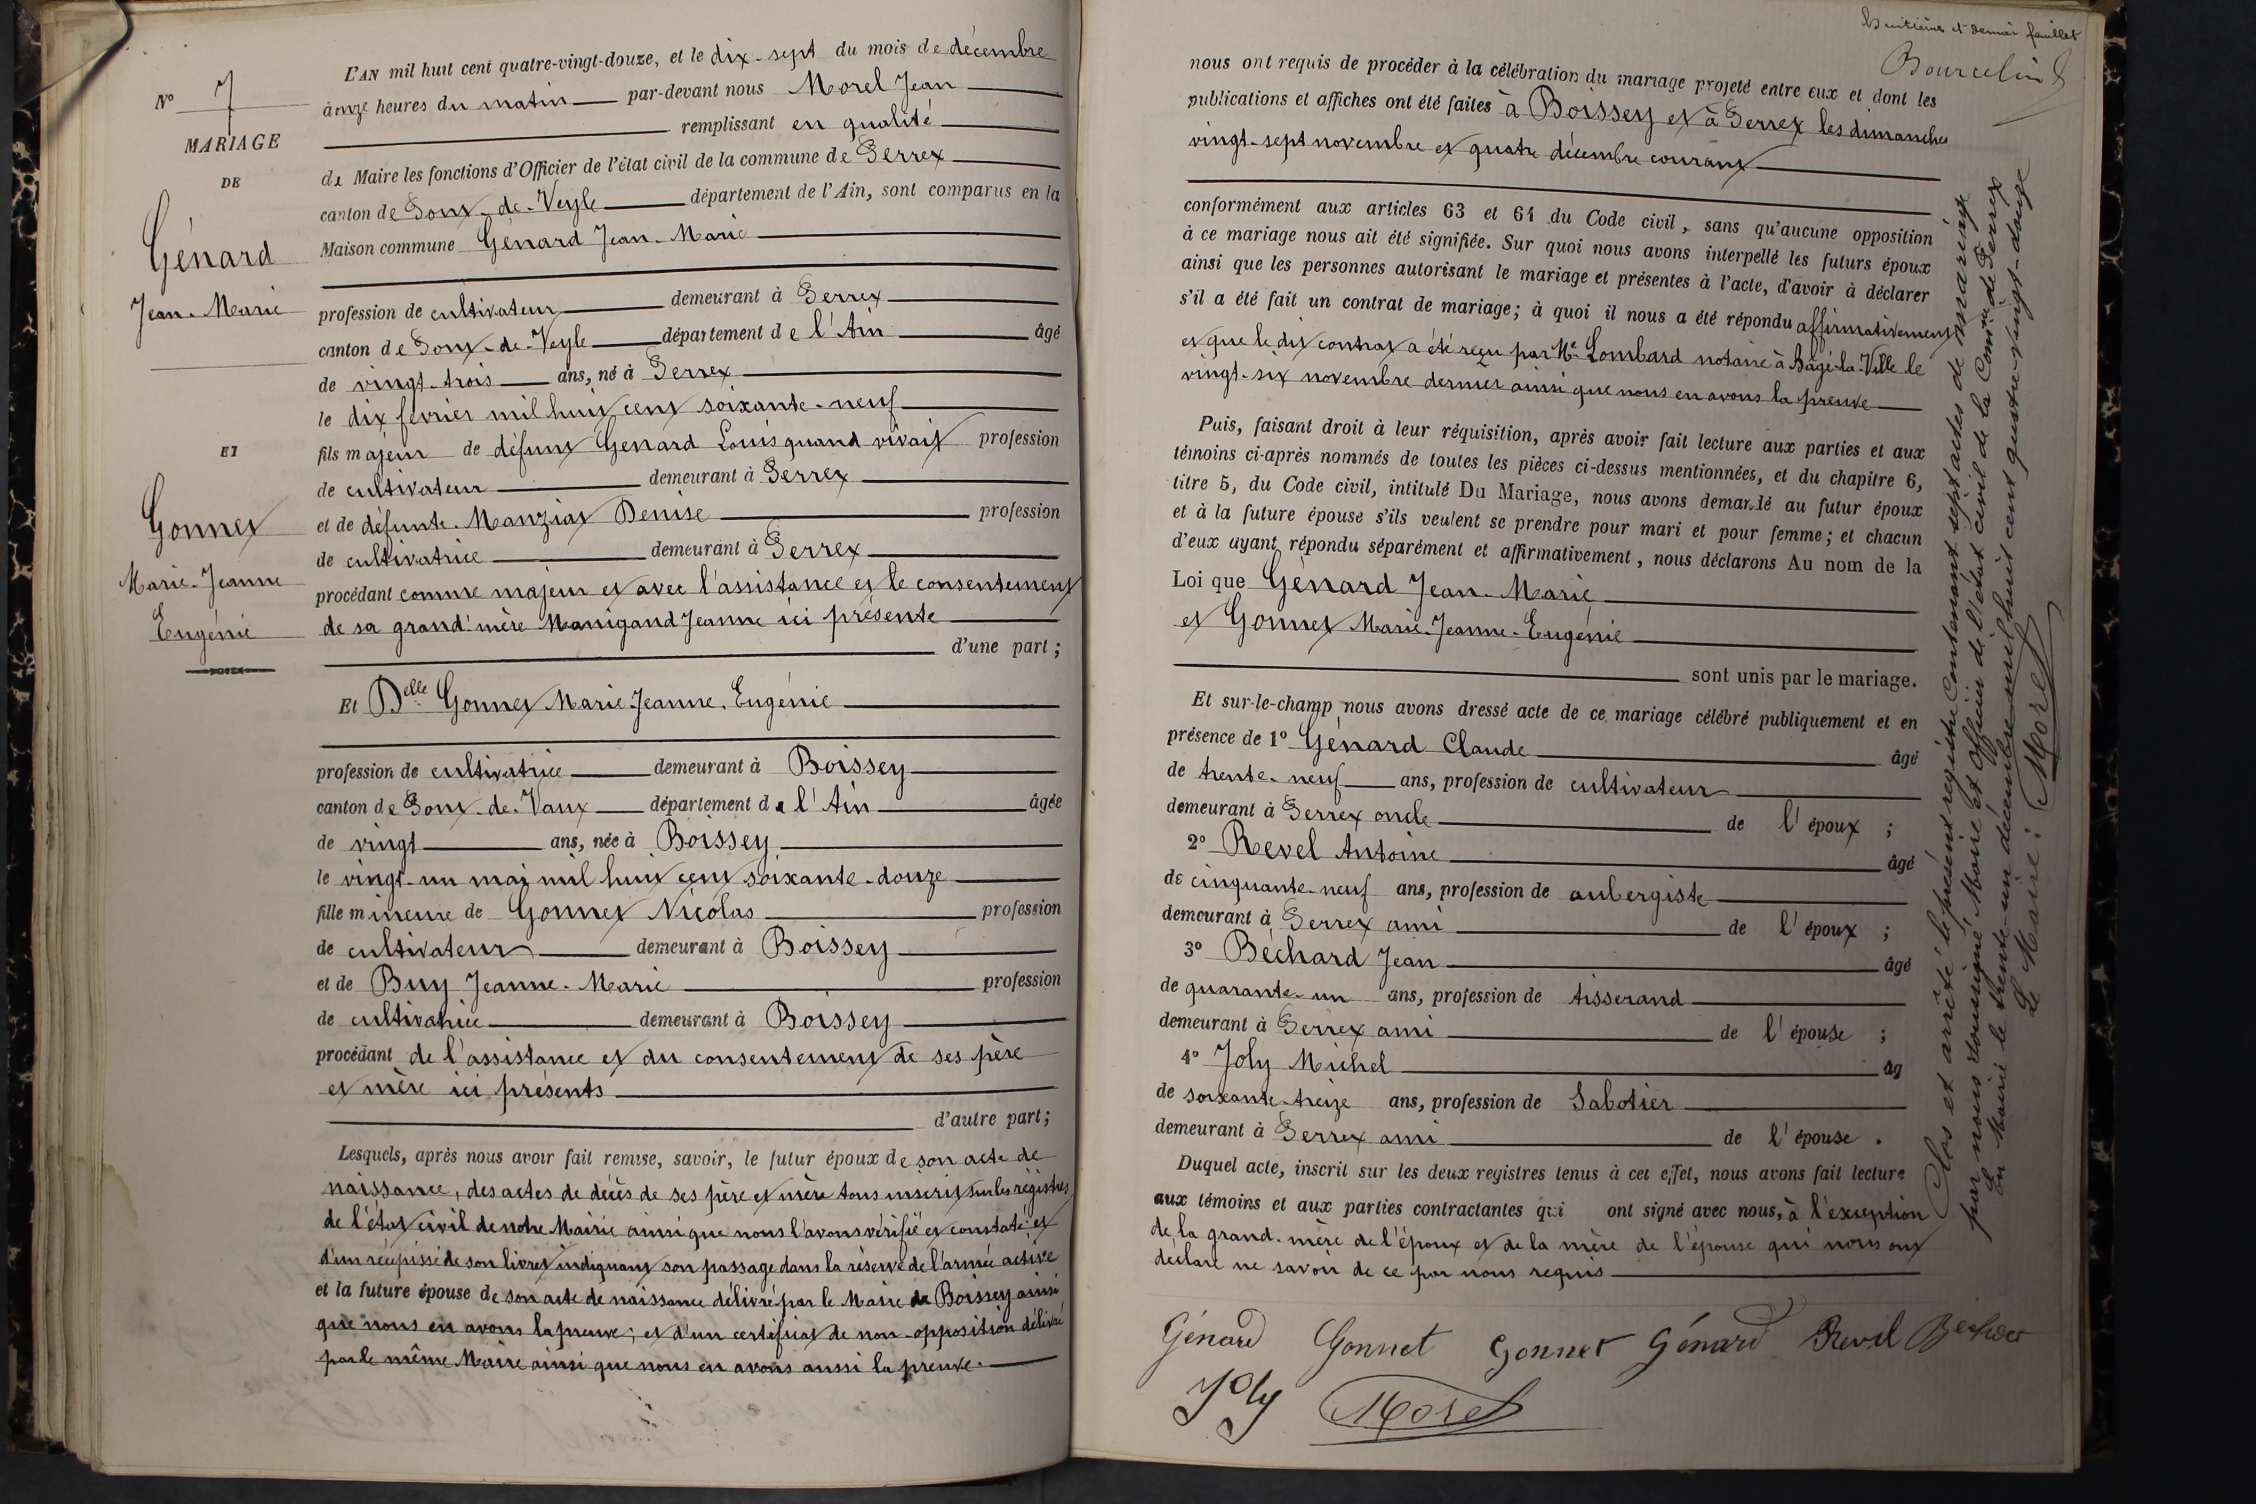 N° 7
MARIAGE
DE
Génard
Jean-Marie
ET
Gonnet
Marie-Jeanne
Eugénie
L'AN mil huit cent quatre-vingt-douze, et le dix-sept du mois de décembre
à onze heures du matin par-devant nous Morel Jean
remplissant en qualité
de Maire les fonctions d'Officier de l'état civil de la commune de Perrex
canton de Pont-de-Veyle département de l'Ain, sont comparus en la
Maison commune Génard Jean-Marie
profession de cultivateur demeurant à Perrex
canton de Pont-de-Veyle département de l'Ain âgé
de vingt-trois ans, né à Perrex
le dix février mil huit cent soixante-neuf
fils majeur de défunt Génard Louis quand vivait profession
de cultivateur demeurant à Perrex
et de défunte Manziat Denise profession
de cultivatrice demeurant à Perrex
procédant comme majeur et avec l'assistance et le consentement
de sa grand'mère Manigand Jeanne ici présente
d'une part;
Et Delle Gonnet Marie-Jeanne, Eugénie
profession de cultivatrice demeurant à Boissey
canton de Pont-de-Vaux département de l'Ain âgée
de vingt ans, née à Boissey
le vingt-un mai mil huit cent soixante-douze
fille mineure de Gonnet Nicolas profession
de cultivateur demeurant à Boissey
et de Buy Jeanne-Marie profession
de cultivatrice demeurant à Boissey
procédant de l'assistance et du consentement de ses père
et mère ici présents
d'autre part;
Lesquels, après nous avoir fait remise, savoir, le futur époux de son acte de
naissance, des actes de décès de ses père et mère tous inscrit sur les régistres
de l'état civil de notre Mairie ainsi que nous l'avons vérifié et constaté et
d'un récépissé de son livret indiquant son passage dans la réserve de l'armée active
et la future épouse de son acte de naissance délivré par le Maire de Boissey ainsi
que nous en avons la preuve; et d'un certificat de non-opposition délivré
par le même Maire ainsi que nous en avons aussi la preuve.
huitième et dernier feuillet
Bourcelin
nous ont requis de procéder à la célébration du mariage projeté entre eux et dont les
publications et affiches ont été faites à Boissey et à Perrex les dimanches
vingt-sept novembre et quatre décembre courant
conformément aux articles 63 et 64 du Code civil, sans qu'aucune opposition
à ce mariage nous ait été signifiée. Sur quoi nous avons interpellé les futurs époux
ainsi que les personnes autorisant le mariage et présentes à l'acte, d'avoir à déclarer
s'il a été fait un contrat de mariage; à quoi il nous a été répondu affirmativement
et que le dit contrat a été reçu par Me Lombard notaire à Bâgé-la-Ville le
vingt-six novembre dernier ainsi que nous en avons la preuve
Puis, faisant droit à leur réquisition, après avoir fait lecture aux parties et aux
témoins ci-après nommés de toutes les pièces ci-dessus mentionnées, et du chapitre 6,
titre 5, du Code civil, intitulé Du Mariage, nous avons demandé au futur époux
et à la future épouse s'ils veulent se prendre pour mari et pour femme; et chacun
d'eux ayant répondu séparément et affirmativement, nous déclarons Au nom de la
Loi que Génard Jean-Marie
et Gonnet Marie-Jeanne-Eugénie
sont unis par le mariage.
Et sur-le-champ nous avons dressé acte de ce mariage célébré publiquement et en
présence de 1° Génard Claude âgé
de trente-neuf ans, profession de cultivateur
demeurant à Perrex oncle de l'époux ;
2° Revel Antoine âgé
de cinquante-neuf ans, profession de aubergiste
demeurant à Perrex ami de l'époux ;
3° Béchard Jean âgé
de quarante-un ans, profession de tisserand
demeurant à Perrex ami de l'épouse ;
4° Joly Michel âg
de soixante-treize ans, profession de Sabotier
demeurant à Perrex ami de l'épouse .
Duquel acte, inscrit sur les deux registres tenus à cet effet, nous avons fait lecture
aux témoins et aux parties contractantes qui ont signé avec nous, à l'exception
de la grand-mère de l'époux et de la mère de l'épouse qui nous ont
déclaré ne savoir de ce par nous requis
Génard Gonnet Gonnet Génard Revel Béchard
Joly Morel
Clos et arrêté le présent registre contenant sept actes de mariage
par nous soussigné, Maire et officier de l'état civil de la Comne de Perrex
en Mairie le trente-un décembre mil huit cent quatre-vingt-douze
Le Maire:
Morel